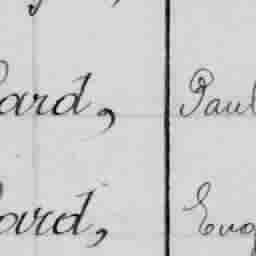 ard, Paul
ard, Eug